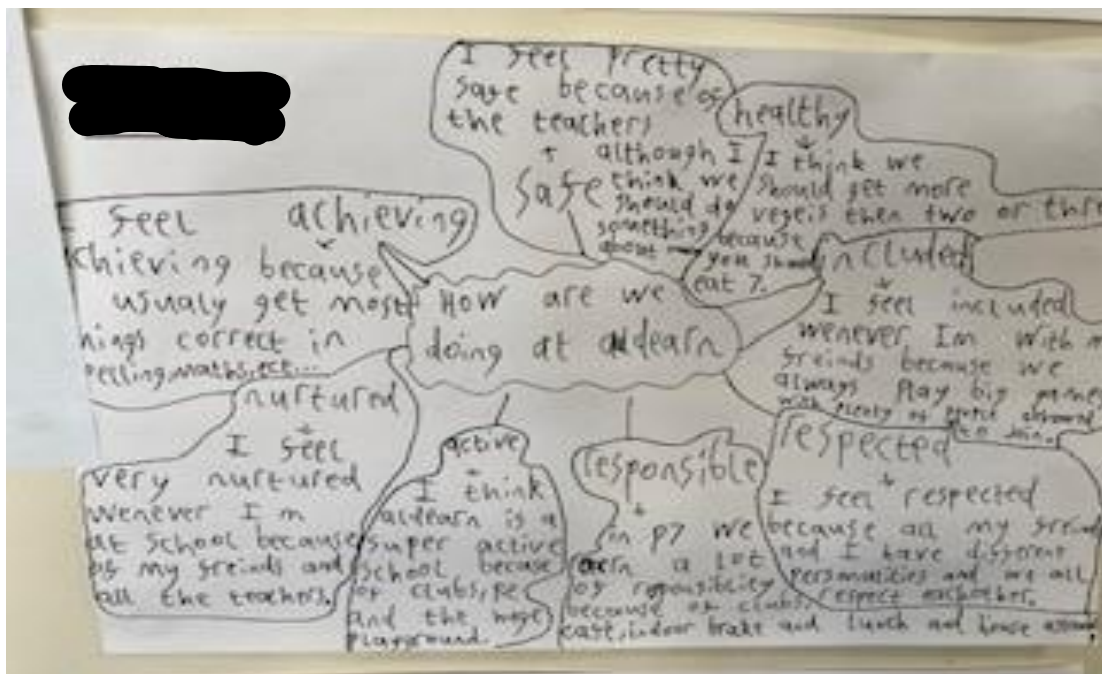 I feel pretty
safe because of
the teachers
+ although I
safe think we
should do
something
about
healthy
I think we
should get more
vegeis then two or thre
because
you should
eat 7.
feel achieving
chieving because
usualy get most
hings correct in
pelling, maths, ect...
How are we
doing at aldearn
included
I feel included
wenever Im with m
freinds because we
always play big games
with plenty of people
to join.
nurtured
I feel
very nurtured
wenever I m
at school because
of my freinds and
all the teachers.
active
I think
aldearn is a
super active
school becase
of clubs, pe
and the huge
playground.
responsible
in p7 we
earn a lot
of reponsiblity
because of clubs,
indoor brake and lunch and house
respected
I feel respected
because all my freind
and I have different
personalities and we all
respect eachother.